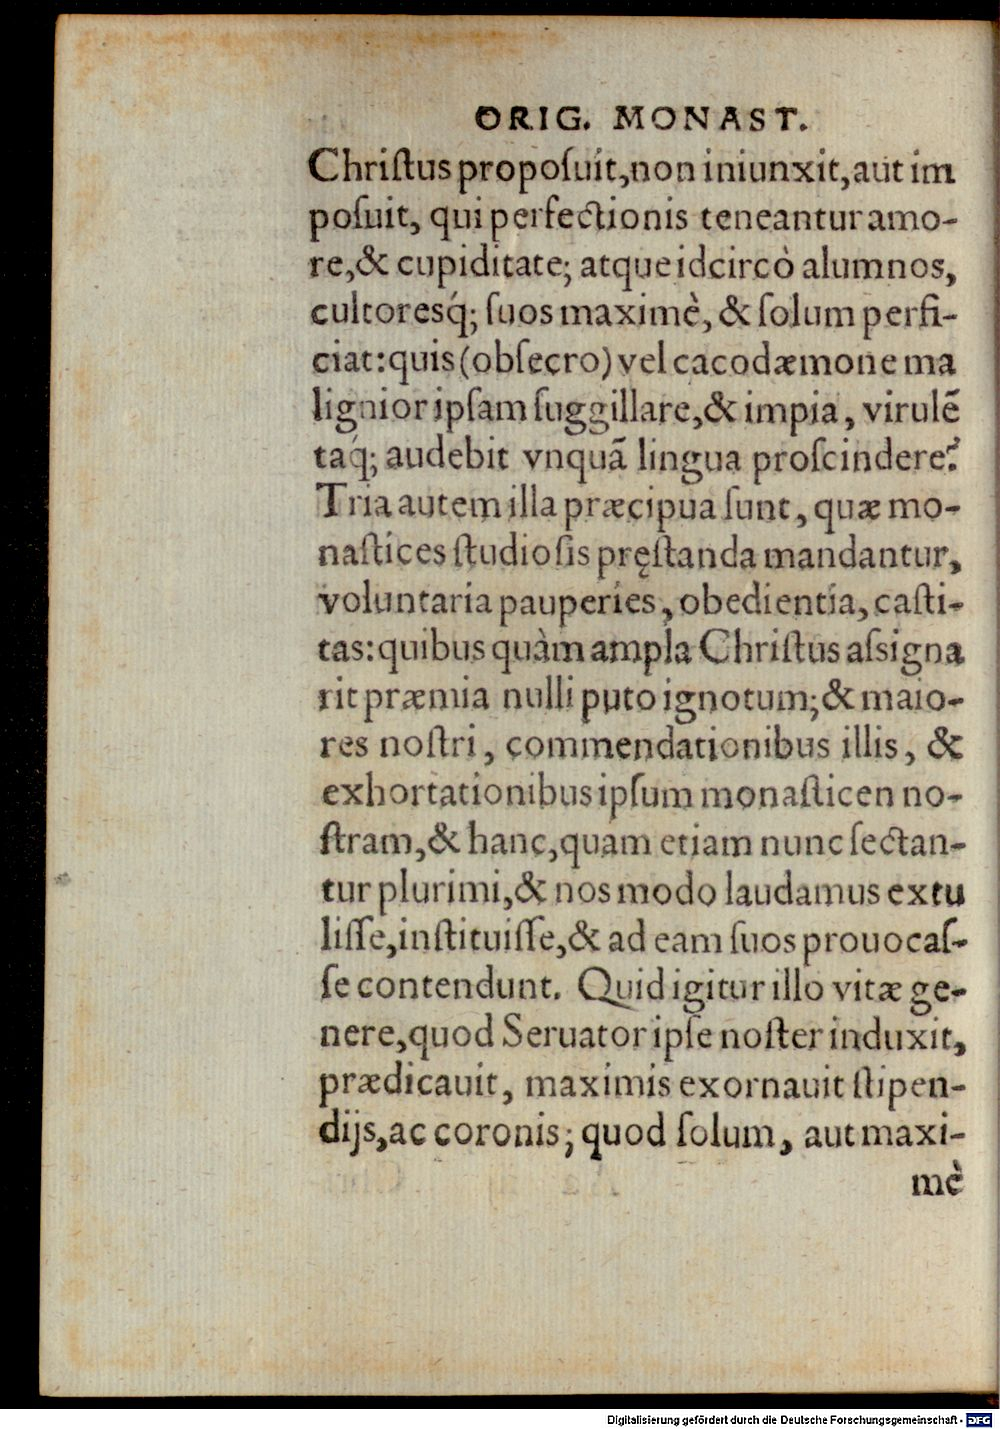 ORIG. MONAST.
Chriſtus propoſuit, non iniunxit, aut im
poſuit, qui perfectionis teneantur amo-
re, & cupiditate; atque idcircò alumnos,
cultoresq́; ſuos maximè, & ſolum perfi-
ciat: quis (obſecro) vel cacodæmone ma
lignior ipſam ſuggillare, & impia, virulẽ
taq́; audebit vnquã lingua proſcindere?
Tria autem illa præcipua ſunt, quæ mo-
naſtices ſtudioſis pręſtanda mandantur,
voluntaria pauperies, obedientia, caſti-
tas: quibus quàm ampla Chriſtus aſsigna
rit præmia nulli puto ignotum; & maio-
res noſtri, commendationibus illis, &
exhortationibus ipſum monaſticen no-
ſtram, & hanc, quam etiam nunc ſectan-
tur plurimi, & nos modo laudamus extu
liſſe, inſtituiſſe, & ad eam ſuos prouocaſ-
ſe contendunt. Quid igitur illo vitæ ge-
nere, quod Seruator ipſe noſter induxit,
prædicauit, maximis exornauit ſtipen-
dijs, ac coronis; quod ſolum, aut maxi-
mè
Digitalisierung gefördert durch die Deutsche Forschungsgemeinschaft - DFG